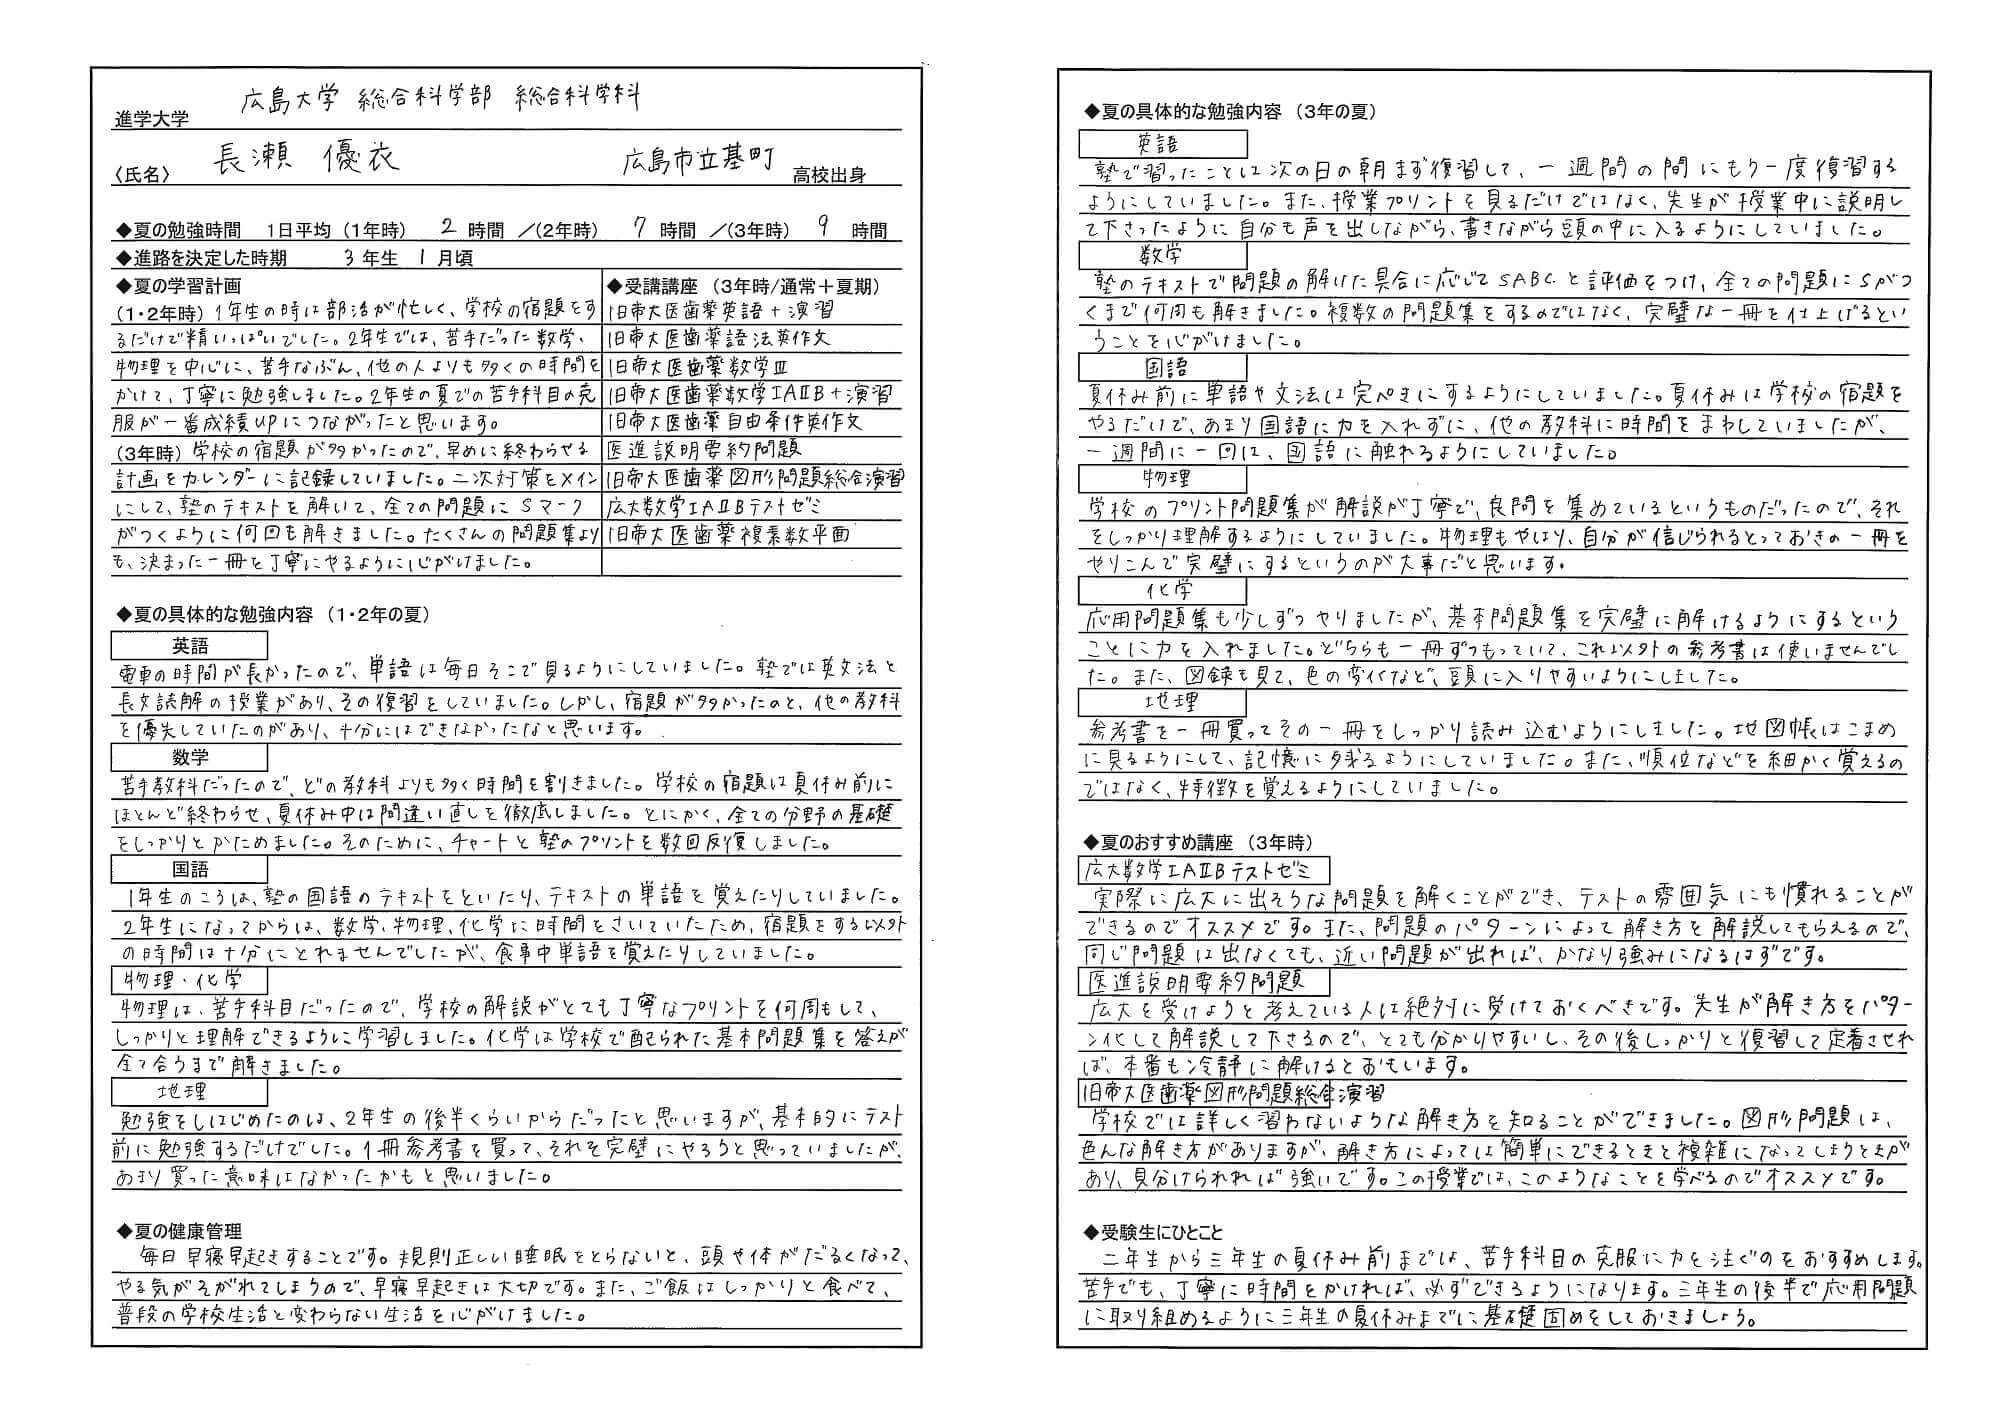 広島大学 総合科学部 総合科学科
進学大学
長瀬 優衣 広島市立基町
〈氏名〉 高校出身
◆夏の勉強時間 1日平均（1年時） 2 時間 ／（2年時） 7 時間 ／（3年時） 9 時間
◆進路を決定した時期 3 年生 1 月頃
◆夏の学習計画
（1・2年時）1年生の時は部活が忙しく、学校の宿題をす
るだけで精いっぱいでした。2年生では、苦手だった数学・
物理を中心に、苦手なぶん、他の人よりも多くの時間を
かけて、丁寧に勉強しました。2年生の夏での苦手科目の克
服が一番成績UPにつながったと思います。
（3年時）学校の宿題が多かったので、早めに終わらせる
計画をカレンダーに記録していました。二次対策をメイン
にして、塾のテキストを解いて、全ての問題にSマーク
がつくように何回も解きました。たくさんの問題集より
も、決まった一冊を丁寧にやるように心がけました。
◆受講講座（3年時/通常＋夏期）
旧帝大医歯薬英語＋演習
旧帝大医歯薬語法英作文
旧帝大医歯薬数学Ⅲ
旧帝大医歯薬数学ⅠAⅡB＋演習
旧帝大医歯薬自由条件英作文
医進説明要約問題
旧帝大医歯薬図形問題総合演習
広大数学ⅠAⅡBテストゼミ
旧帝大医歯薬複素数平面
◆夏の具体的な勉強内容（1・2年の夏）
英語
電車の時間が長かったので、単語は毎日そこで見るようにしていました。塾では英文法と
長文読解の授業があり、その復習をしていました。しかし、宿題が多かったのと、他の教科
を優先していたのがあり、十分にはできなかったなと思います。
数学
苦手教科だったので、どの教科よりも多く時間を割きました。学校の宿題は夏休み前に
ほとんど終わらせ、夏休み中は間違い直しを徹底しました。とにかく、全ての分野の基礎
をしっかりとかためました。そのために、チャートと塾のプリントを数回反復しました。
国語
1年生のころは、塾の国語のテキストをといたり、テキストの単語を覚えたりしていました。
2年生になってからは、数学、物理、化学に時間をさいていたため、宿題をする以外
の時間は十分にとれませんでしたが、食事中単語を覚えたりしていました。
物理・化学
物理は、苦手科目だったので、学校の解説がとても丁寧なプリントを何周もして、
しっかりと理解できるように学習しました。化学は学校で配られた基本問題集を答えが
全て合うまで解きました。
地理
勉強をしはじめたのは、2年生の後半くらいからだったと思いますが、基本的にテスト
前に勉強するだけでした。1冊参考書を買って、それを完璧にやろうと思っていましたが、
あまり買った意味はなかったかもと思いました。
◆夏の健康管理
毎日早寝早起きすることです。規則正しい睡眠をとらないと、頭や体がだるくなって、
やる気がそがれてしまうので、早寝早起きは大切です。また、ご飯はしっかりと食べて、
普段の学校生活と変わらない生活を心がけました。
◆夏の具体的な勉強内容（3年の夏）
英語
塾で習ったことは次の日の朝まず復習して、一週間の間にもう一度復習する
ようにしていました。また、授業プリントを見るだけではなく、先生が授業中に説明し
て下さったように自分も声を出しながら、書きながら頭の中に入るようにしていました。
数学
塾のテキストで問題の解けた具合に応じてSABCと評価をつけ、全ての問題にSがつ
くまで何周も解きました。複数の問題集をするのではなく、完璧な一冊を仕上げるとい
うことを心がけました。
国語
夏休み前に単語や文法は完ぺきにするようにしていました。夏休みは学校の宿題を
やるだけで、あまり国語に力を入れずに、他の教科に時間をまわしていましたが、
一週間に一回は、国語に触れるようにしていました。
物理
学校のプリント問題集が解説が丁寧で、良問を集めているというものだったので、それ
をしっかり理解するようにしていました。物理もやはり、自分が信じられるとっておきの一冊を
やりこんで完璧にするというのが大事だと思います。
化学
応用問題集も少しずつやりましたが、基本問題集を完璧に解けるようにするという
ことに力を入れました。どちらも一冊ずつもっていて、これ以外の参考書は使いませんでし
た。また、図録も見て、色の変化など、頭に入りやすいようにしました。
地理
参考書を一冊買ってその一冊をしっかり読み込むようにしました。地図帳はこまめ
に見るようにして、記憶に残るようにしていました。また、順位などを細かく覚えるの
ではなく、特徴を覚えるようにしていました。
◆夏のおすすめ講座（3年時）
広大数学ⅠAⅡBテストゼミ
実際に広大に出そうな問題を解くことができ、テストの雰囲気にも慣れることが
できるのでオススメです。また、問題のパターンによって解き方を解説してもらえるので、
同じ問題は出なくても、近い問題が出れば、かなり強みになるはずです。
医進説明要約問題
広大を受けようと考えている人は絶対に受けておくべきです。先生が解き方をパター
ン化して解説して下さるので、とても分かりやすいし、その後しっかりと復習して定着させれ
ば、本番も冷静に解けるとおもいます。
旧帝大医歯薬図形問題総合演習
学校では詳しく習わないような解き方を知ることができました。図形問題は、
色んな解き方がありますが、解き方によっては簡単にできるときと複雑になってしまうときが
あり、見分けられれば強いです。この授業では、このようなことを学べるのでオススメです。
◆受験生にひとこと
二年生から三年生の夏休み前までは、苦手科目の克服に力を注ぐのをおすすめします。
苦手でも、丁寧に時間をかければ、必ずできるようになります。三年生の後半で応用問題
に取り組めるように三年生の夏休みまでに基礎固めをしておきましょう。